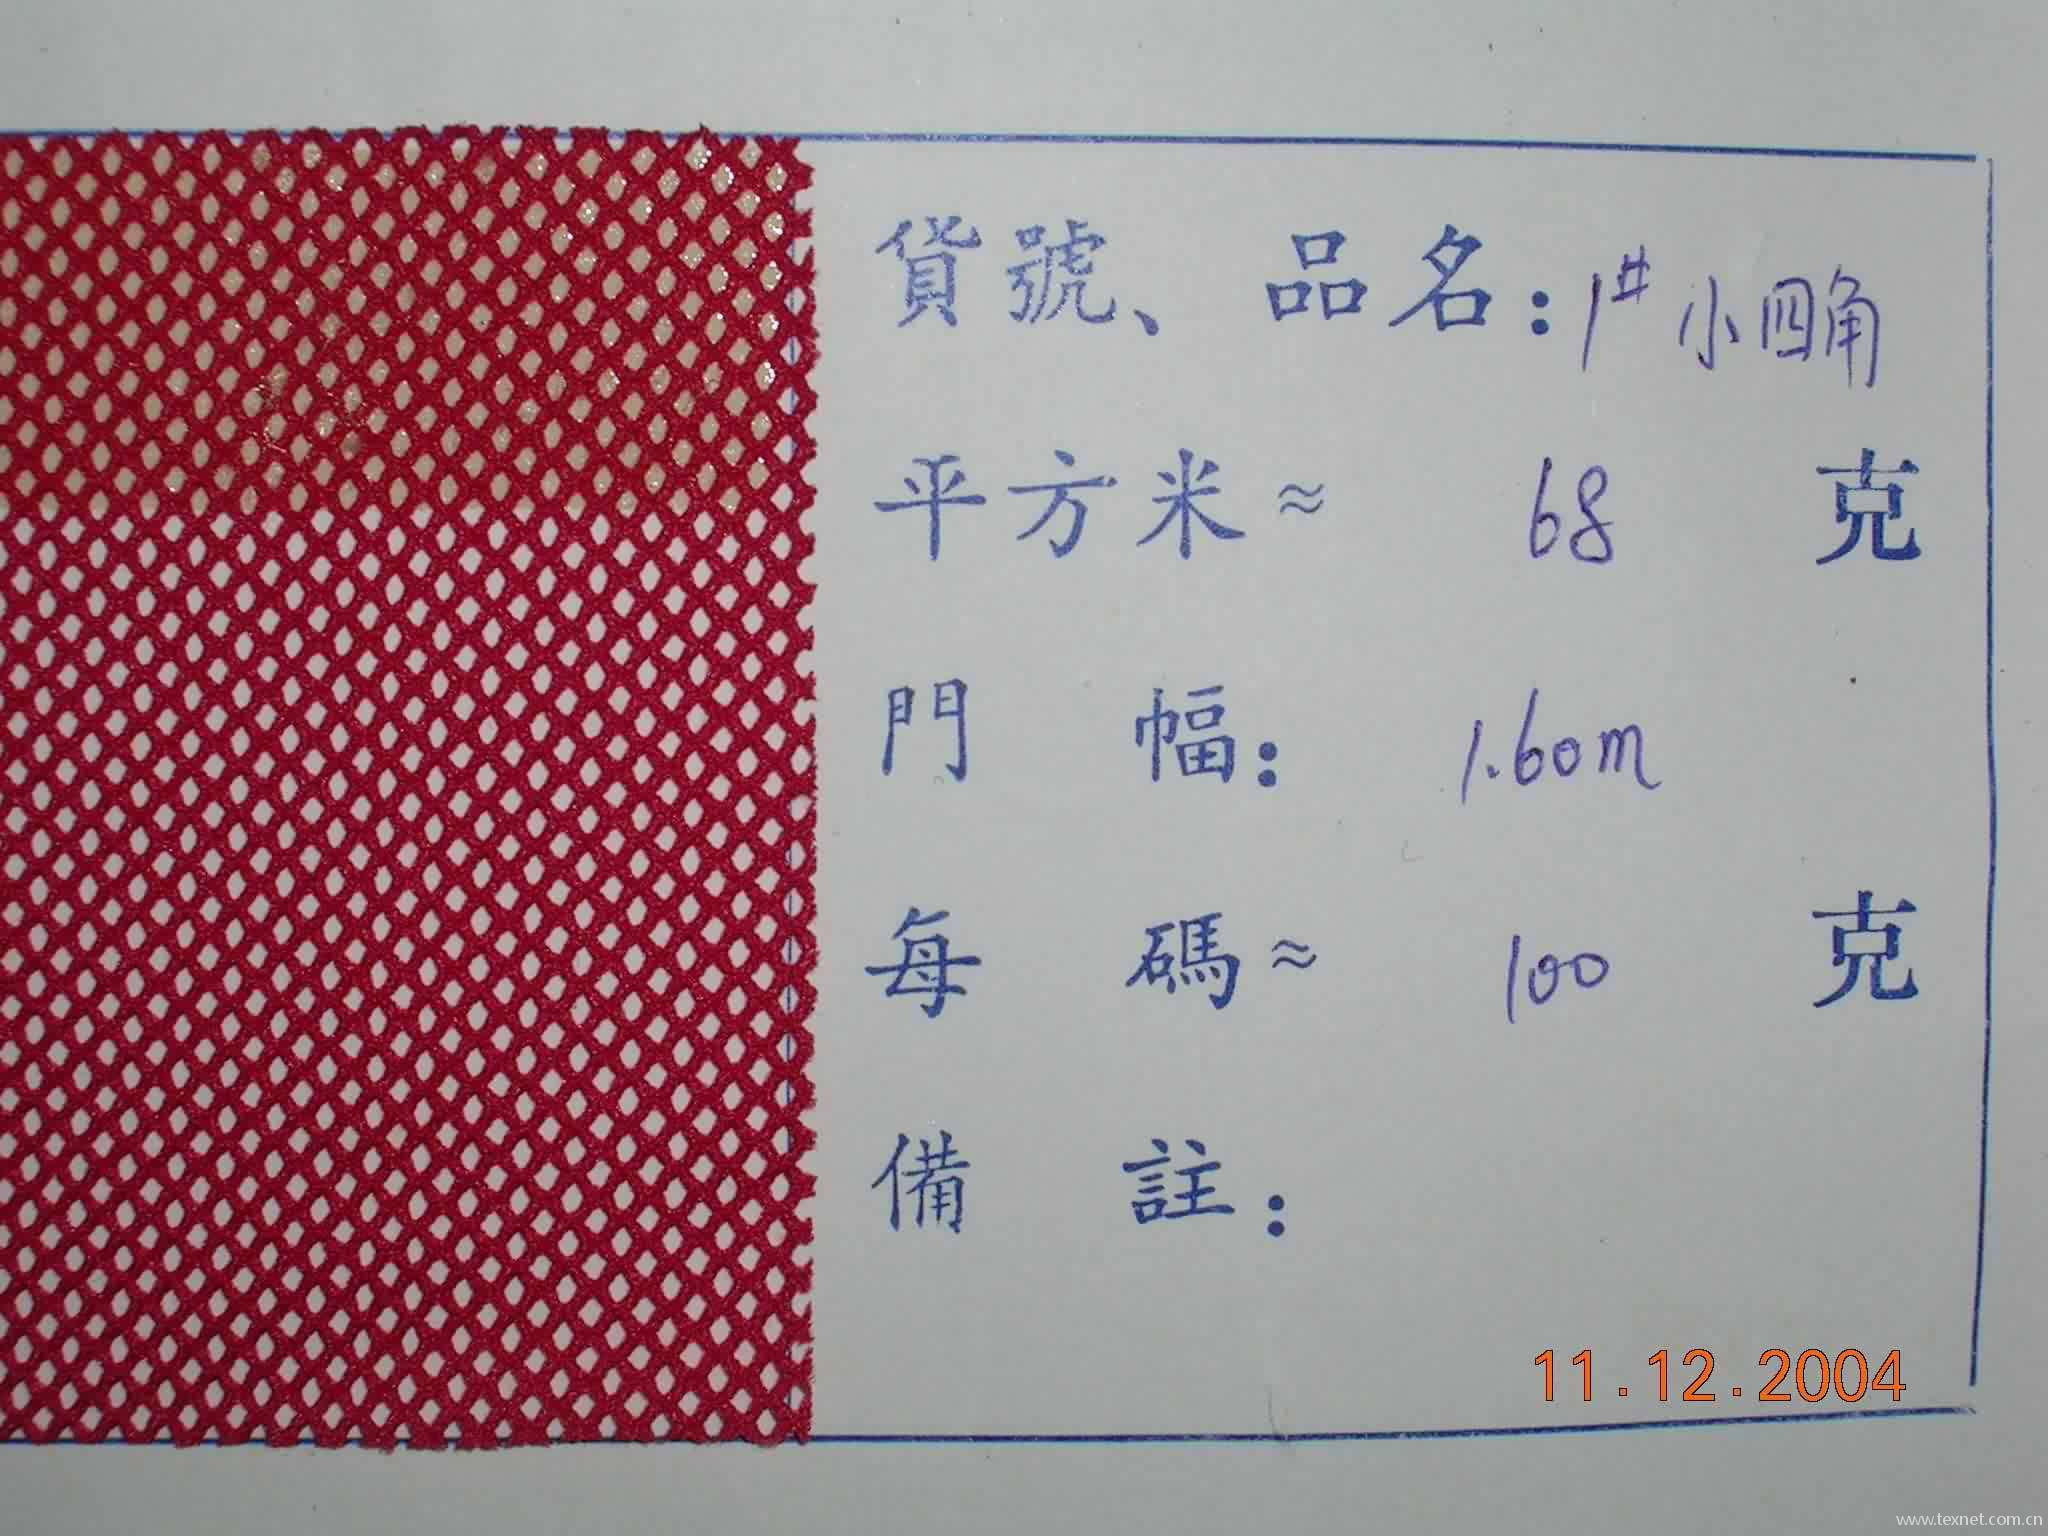 貨號、品名：1# 小四角
平方米≈ 68 克
門幅： 1.60m
每碼≈ 100 克
備註：
11.12.2004
www.texnet.com.cn